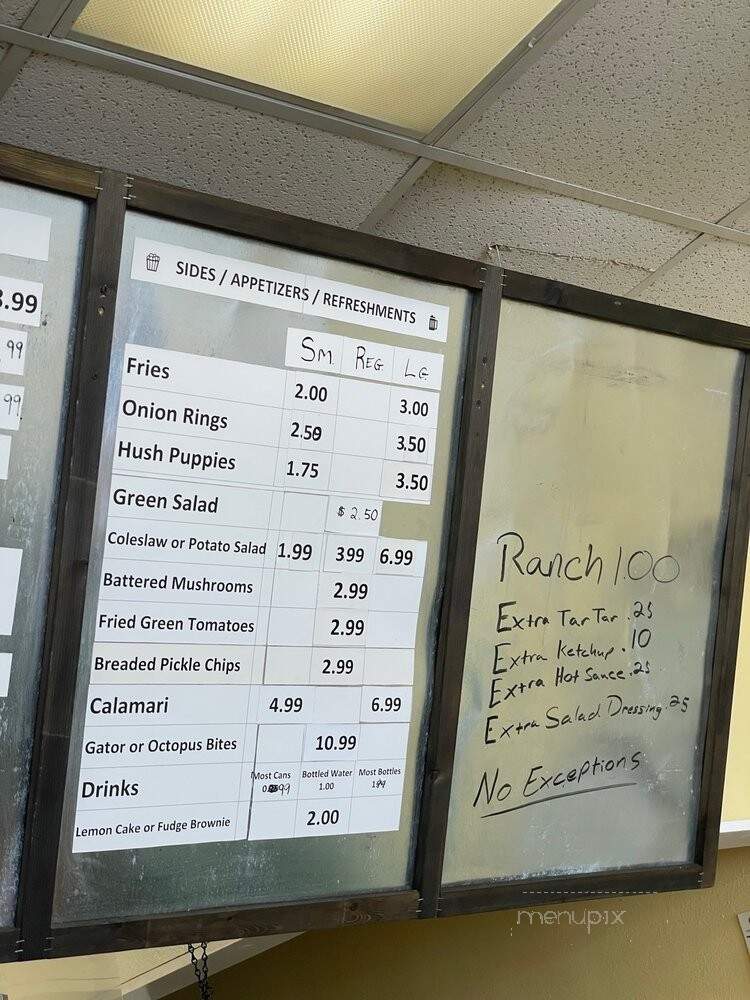 .99
99
99
SIDES / APPETIZERS / REFRESHMENTS
SM. REG LG
Fries 2.00 3.00
Onion Rings 2.50 3.50
Hush Puppies 1.75 3.50
Green Salad $2.50
Coleslaw or Potato Salad 1.99 3.99 6.99
Battered Mushrooms 2.99
Fried Green Tomatoes 2.99
Breaded Pickle Chips 2.99
Calamari 4.99 6.99
Gator or Octopus Bites 10.99
Most Cans Bottled Water Most Bottles
Drinks 1.00
Lemon Cake or Fudge Brownie 2.00
Ranch 1.00
Extra TarTar .25
Extra Ketchup .10
Extra Hot Sauce .25
Extra Salad Dressing .25
No Exceptions
menupix